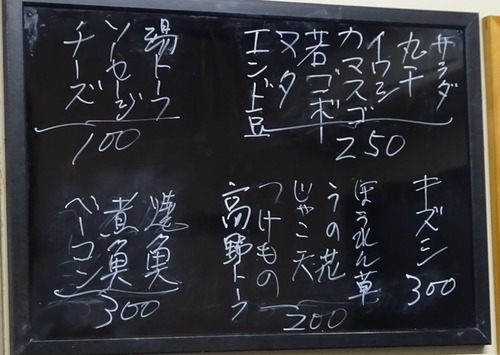 サラダ
丸干
イワシ
カマスゴ
若ゴボー
ヌタ
エンド豆
250
湯トーフ
ソーセージ
チーズ
100
キズシ
300
ほうれん草
うの花
じゃこ天
つけもの
高野トーフ
200
焼魚
煮魚
ベーコン
300